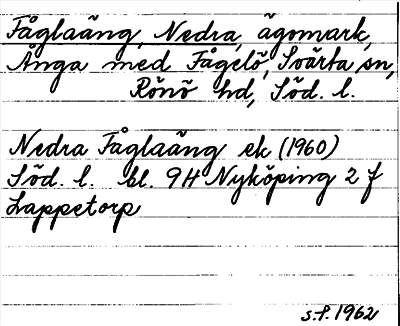 Fåglaäng, Nedra, ägomark,
Änga med Fågelö, Svärta sn,
Rönö hd, Söd. l.
Nedra Fåglaäng ek (1960)
Söd. l. bl. 9H Nyköping 2 f
Lappetorp
s.f. 1962